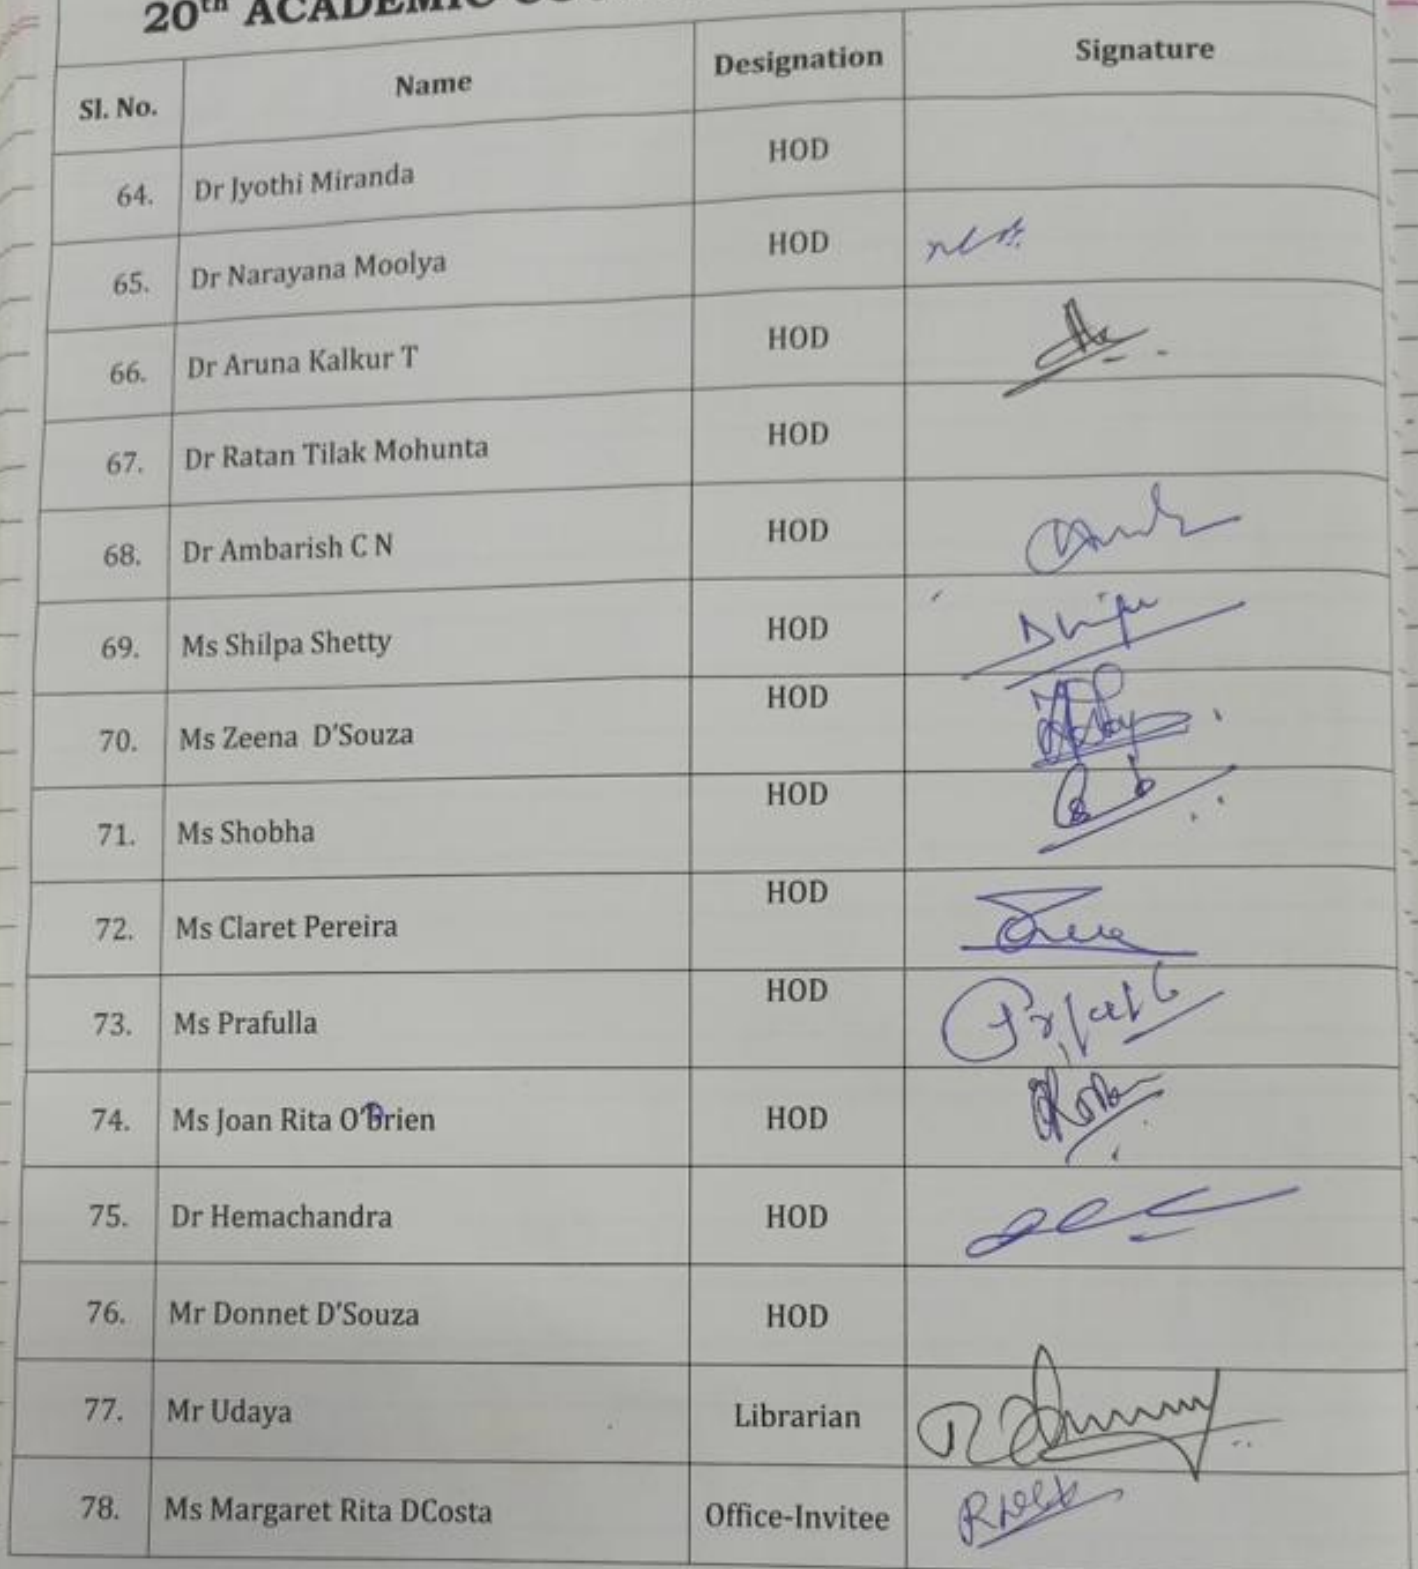 20th ACADEMIC
Sl. No. Name Designation Signature
64. Dr Jyothi Miranda HOD
65. Dr Narayana Moolya HOD
66. Dr Aruna Kalkur T HOD
67. Dr Ratan Tilak Mohunta HOD
68. Dr Ambarish C N HOD
69. Ms Shilpa Shetty HOD
70. Ms Zeena D'Souza HOD
71. Ms Shobha HOD
72. Ms Claret Pereira HOD
73. Ms Prafulla HOD
74. Ms Joan Rita O'Brien HOD
75. Dr Hemachandra HOD
76. Mr Donnet D'Souza HOD
77. Mr Udaya Librarian
78. Ms Margaret Rita DCosta Office-Invitee